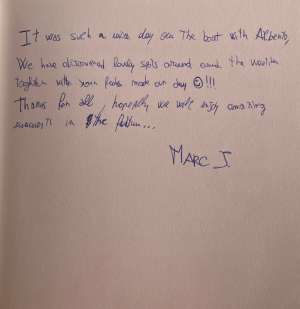 It was such a nice day on the boat with Alberto,
We have discovered lovely spots around and the
Together with your made our day ☺!!!
Thanks for all, hopefully we will enjoy amazing
moments in the future...
MARC J.